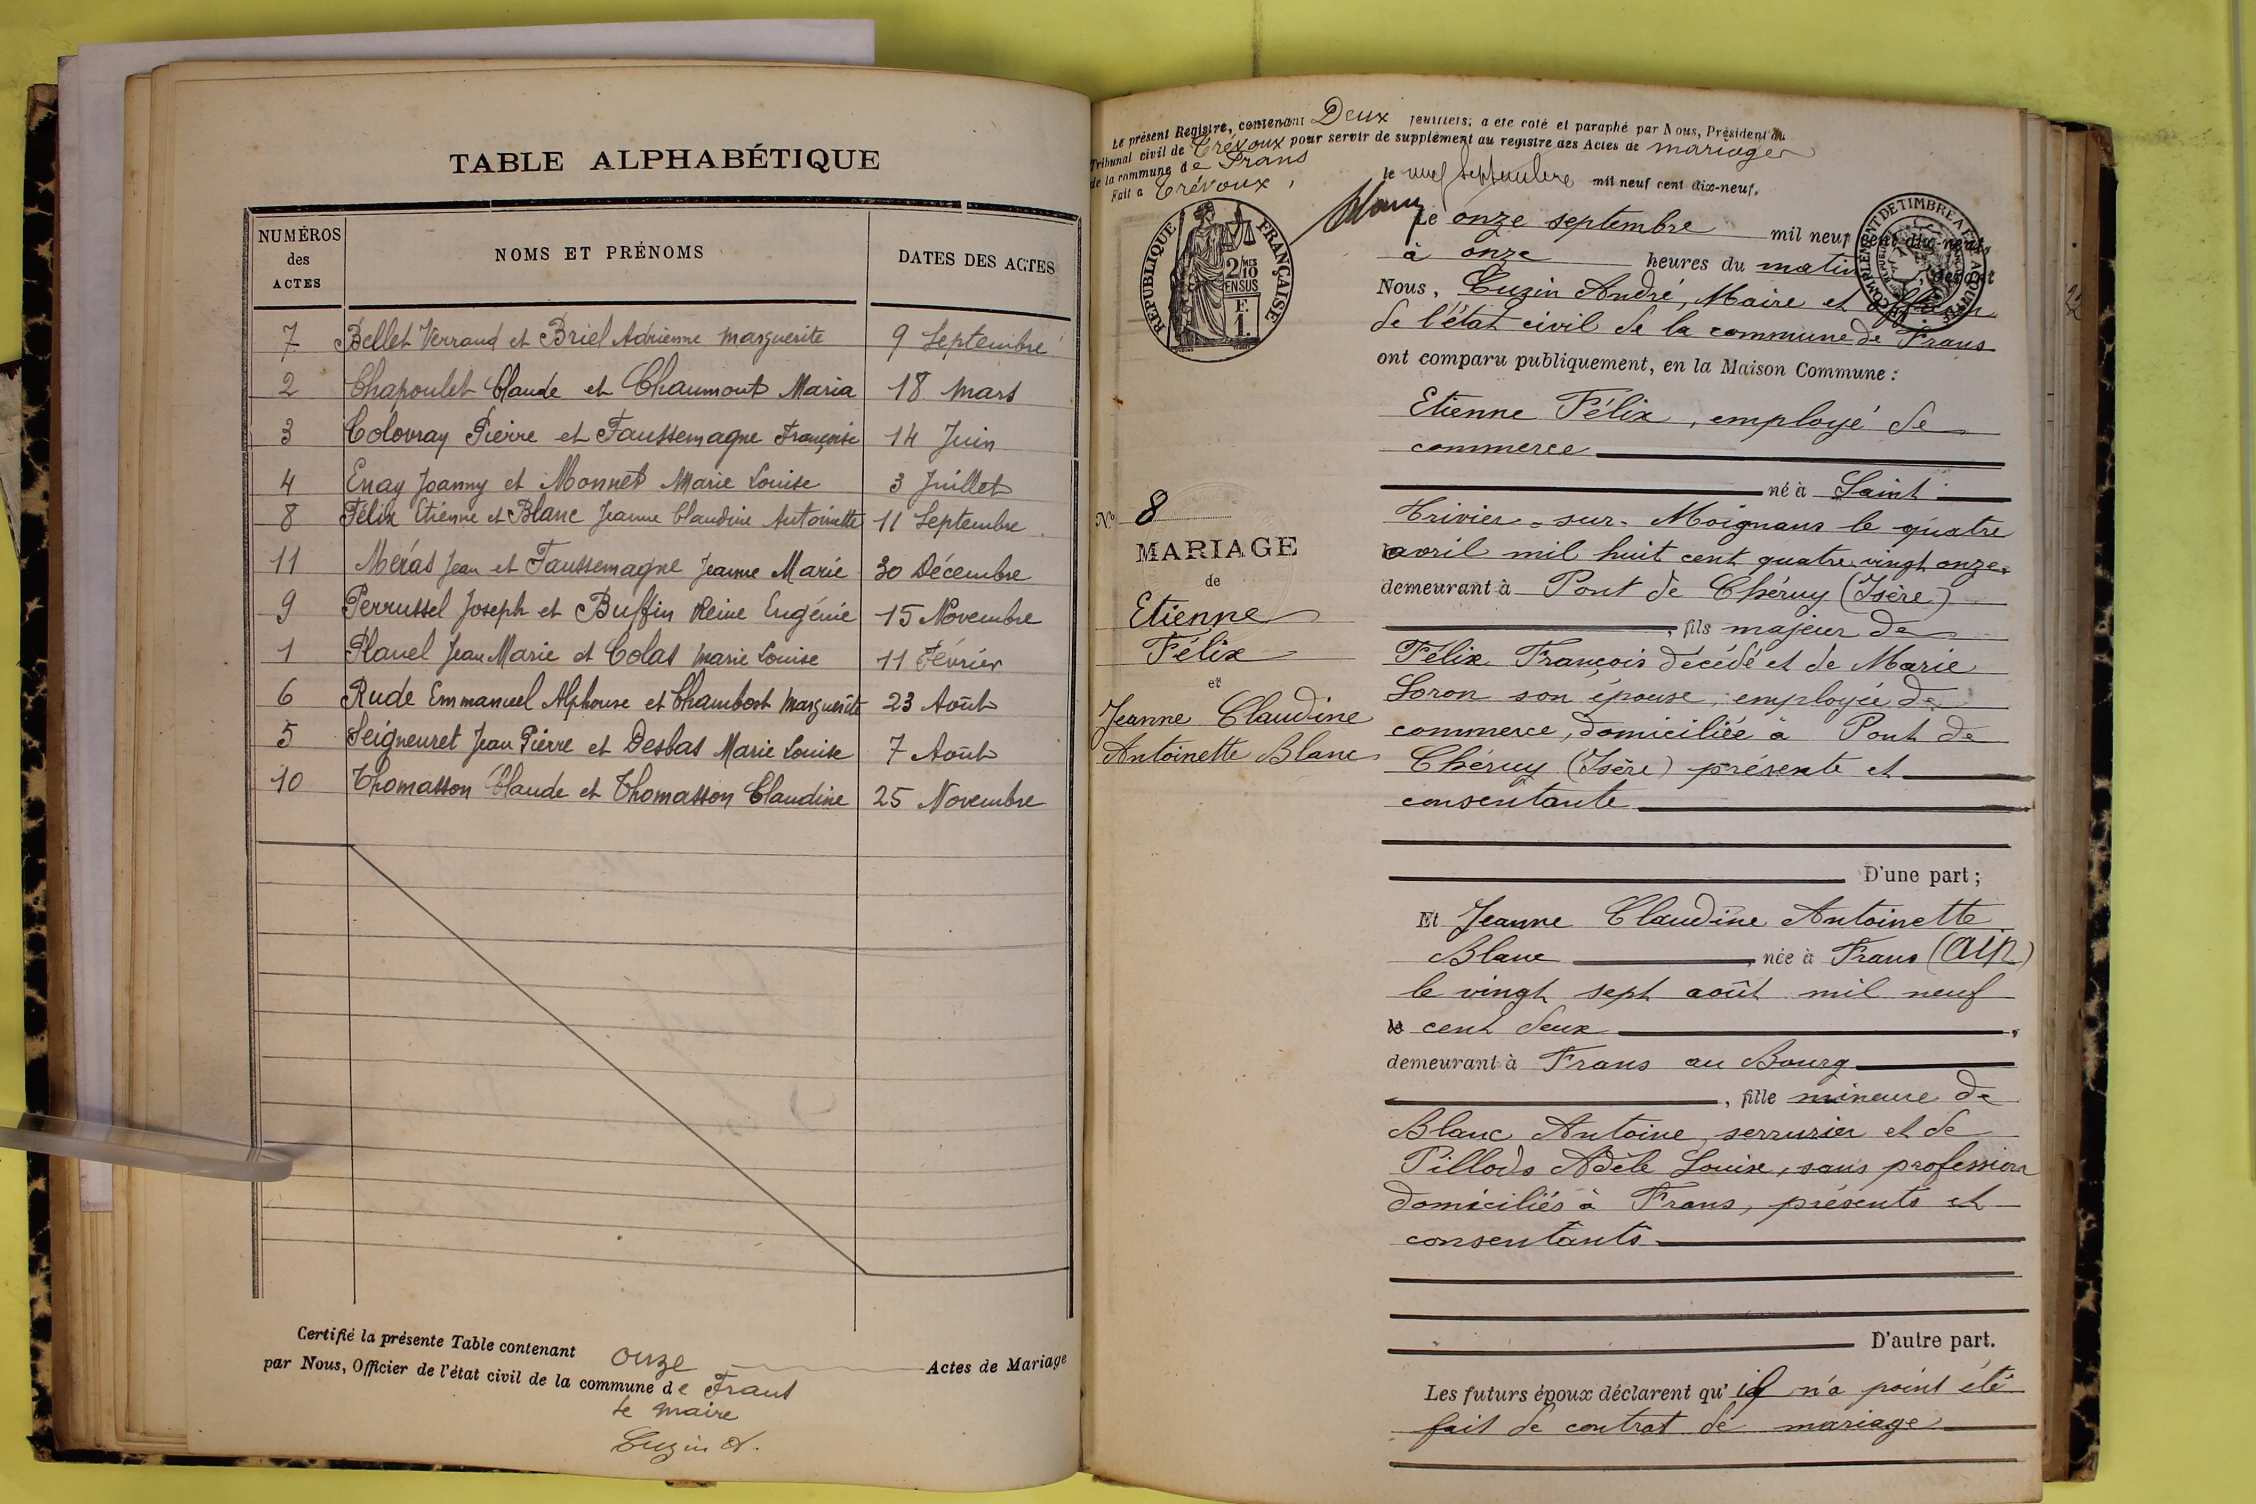 TABLE ALPHABÉTIQUE
NUMÉROS des ACTES
NOMS ET PRÉNOMS
DATES DES ACTES
7 Bellet Verrand et Briel Adrienne Marguerite 9 Septembre
2 Chapoulet Claude et Chaumont Maria 18 Mars
3 Colovray Pierre et Faussemagne Françoise 14 Juin
4 Enay Joanny et Monnet Marie Louise 3 Juillet
8 Félix Etienne et Blanc Jeanne Claudine Antoinette 11 Septembre
11 Méras Jean et Faussemagne Jeanne Marie 30 Décembre
9 Perrussel Joseph et Buffin Reine Eugénie 15 Novembre
1 Planel Jean Marie et Colas Marie Louise 11 Février
6 Rude Emmanuel Alphonse et Chambost Marguerite 23 Août
5 Seigneuret Jean Pierre et Desbas Marie Louise 7 Août
10 Thomasson Claude et Thomasson Claudine 25 Novembre
Certifié la présente Table contenant onze Actes de Mariage
par Nous, Officier de l'état civil de la commune de Frans
Le Maire
Cuzin A.
Le présent Registre, contenant Deux feuillets, a été coté et paraphé par Nous, Président du
Tribunal civil de Trévoux pour servir de supplément au registre des Actes de mariages
de la commune de Frans
Fait à Trévoux, le neuf septembre mil neuf cent dix-neuf.
RÉPUBLIQUE FRANÇAISE
2/10 MES
EN SUS
F.
1.
COMPLÉMENT DE TIMBRE A ÉTÉ ACQUITTÉ
Le onze septembre mil neuf cent dix-neuf,
à onze heures du matin, devant
Nous, Cuzin André, Maire et officier
de l'état civil de la commune de Frans
ont comparu publiquement, en la Maison Commune :
Etienne Félix, employé de
commerce
né à Saint
Trivier-sur-Moignans le quatre
avril mil huit cent quatre vingt onze
demeurant à Pont de Chéruy (Isère)
, fils majeur de
Félix François décédé et de Marie
Loron son épouse, employée de
commerce, domiciliée à Pont de
Chéruy (Isère) présente et
consentante
D'une part ;
Et Jeanne Claudine Antoinette
Blanc, née à Frans (Ain)
le vingt sept août mil neuf
cent deux,
demeurant à Frans au Bourg
, fille mineure de
Blanc Antoine, serrurier et de
Pillods Adèle Louise, sans profession
domiciliés à Frans, présents et
consentants
D'autre part.
Les futurs époux déclarent qu'il n'a point été
fait de contrat de mariage
N° 8
MARIAGE
de
Etienne
Félix
et
Jeanne Claudine
Antoinette Blanc